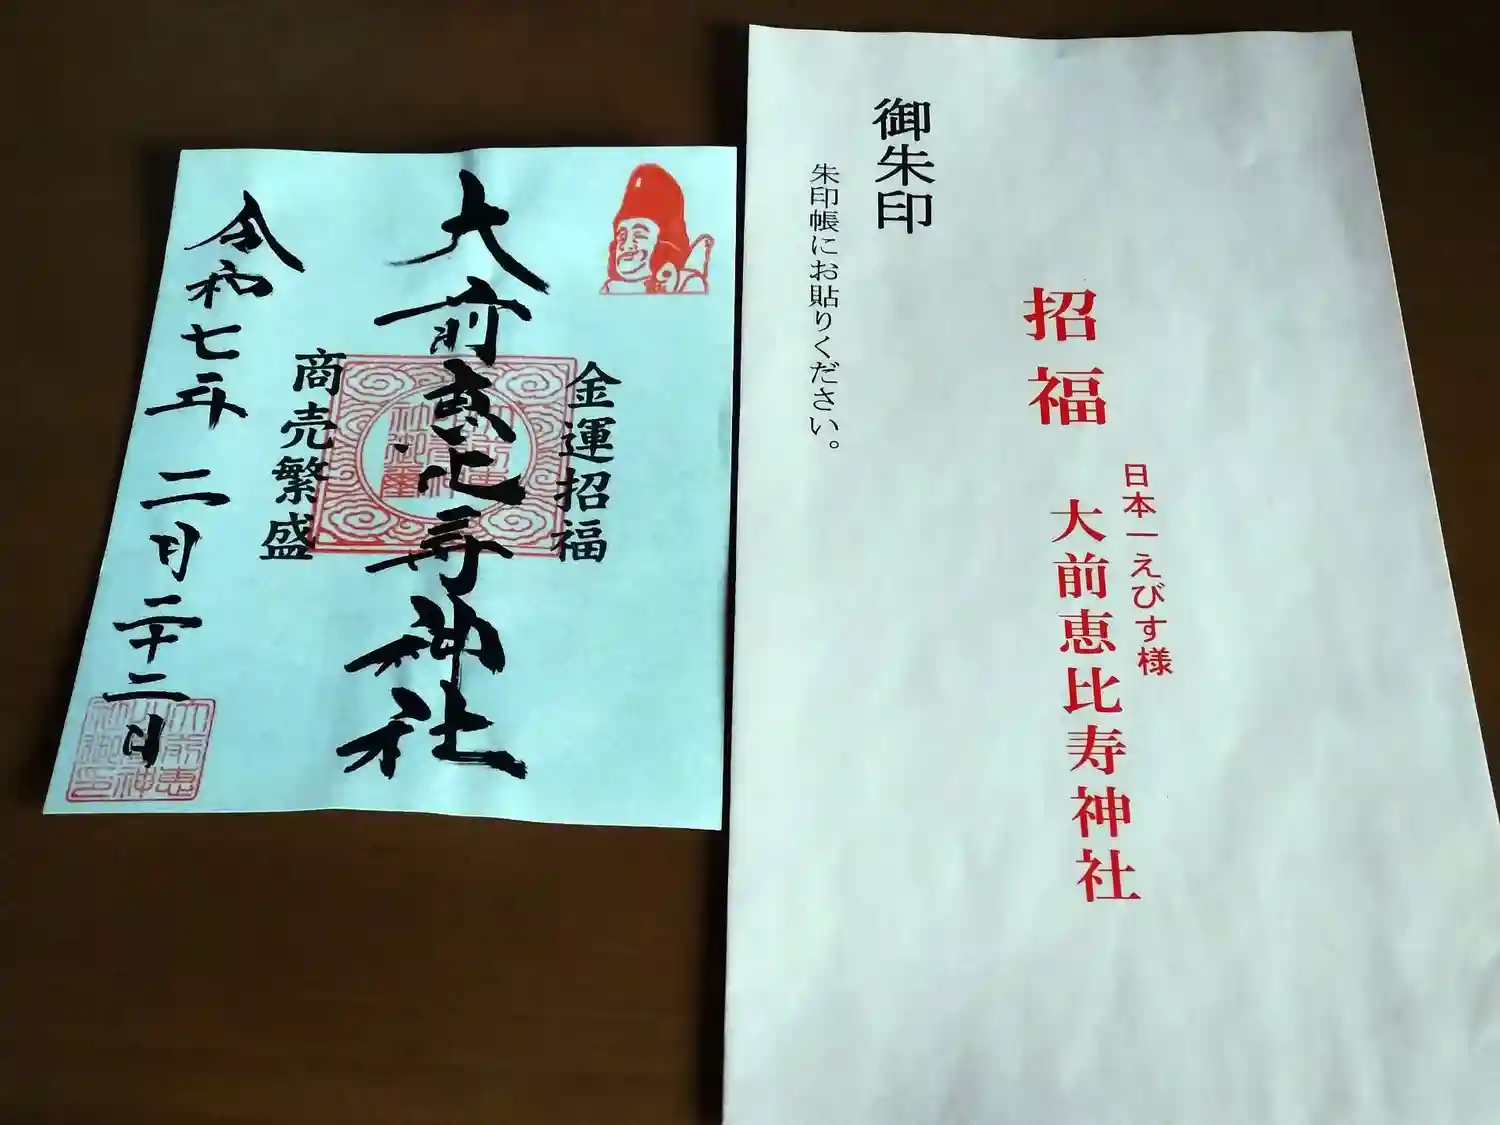 金運招福
大前恵比寿神社
商売繁盛
令和七年 二月二十二日
招福
日本一えびす様
大前恵比寿神社
御朱印
朱印帳にお貼りください。